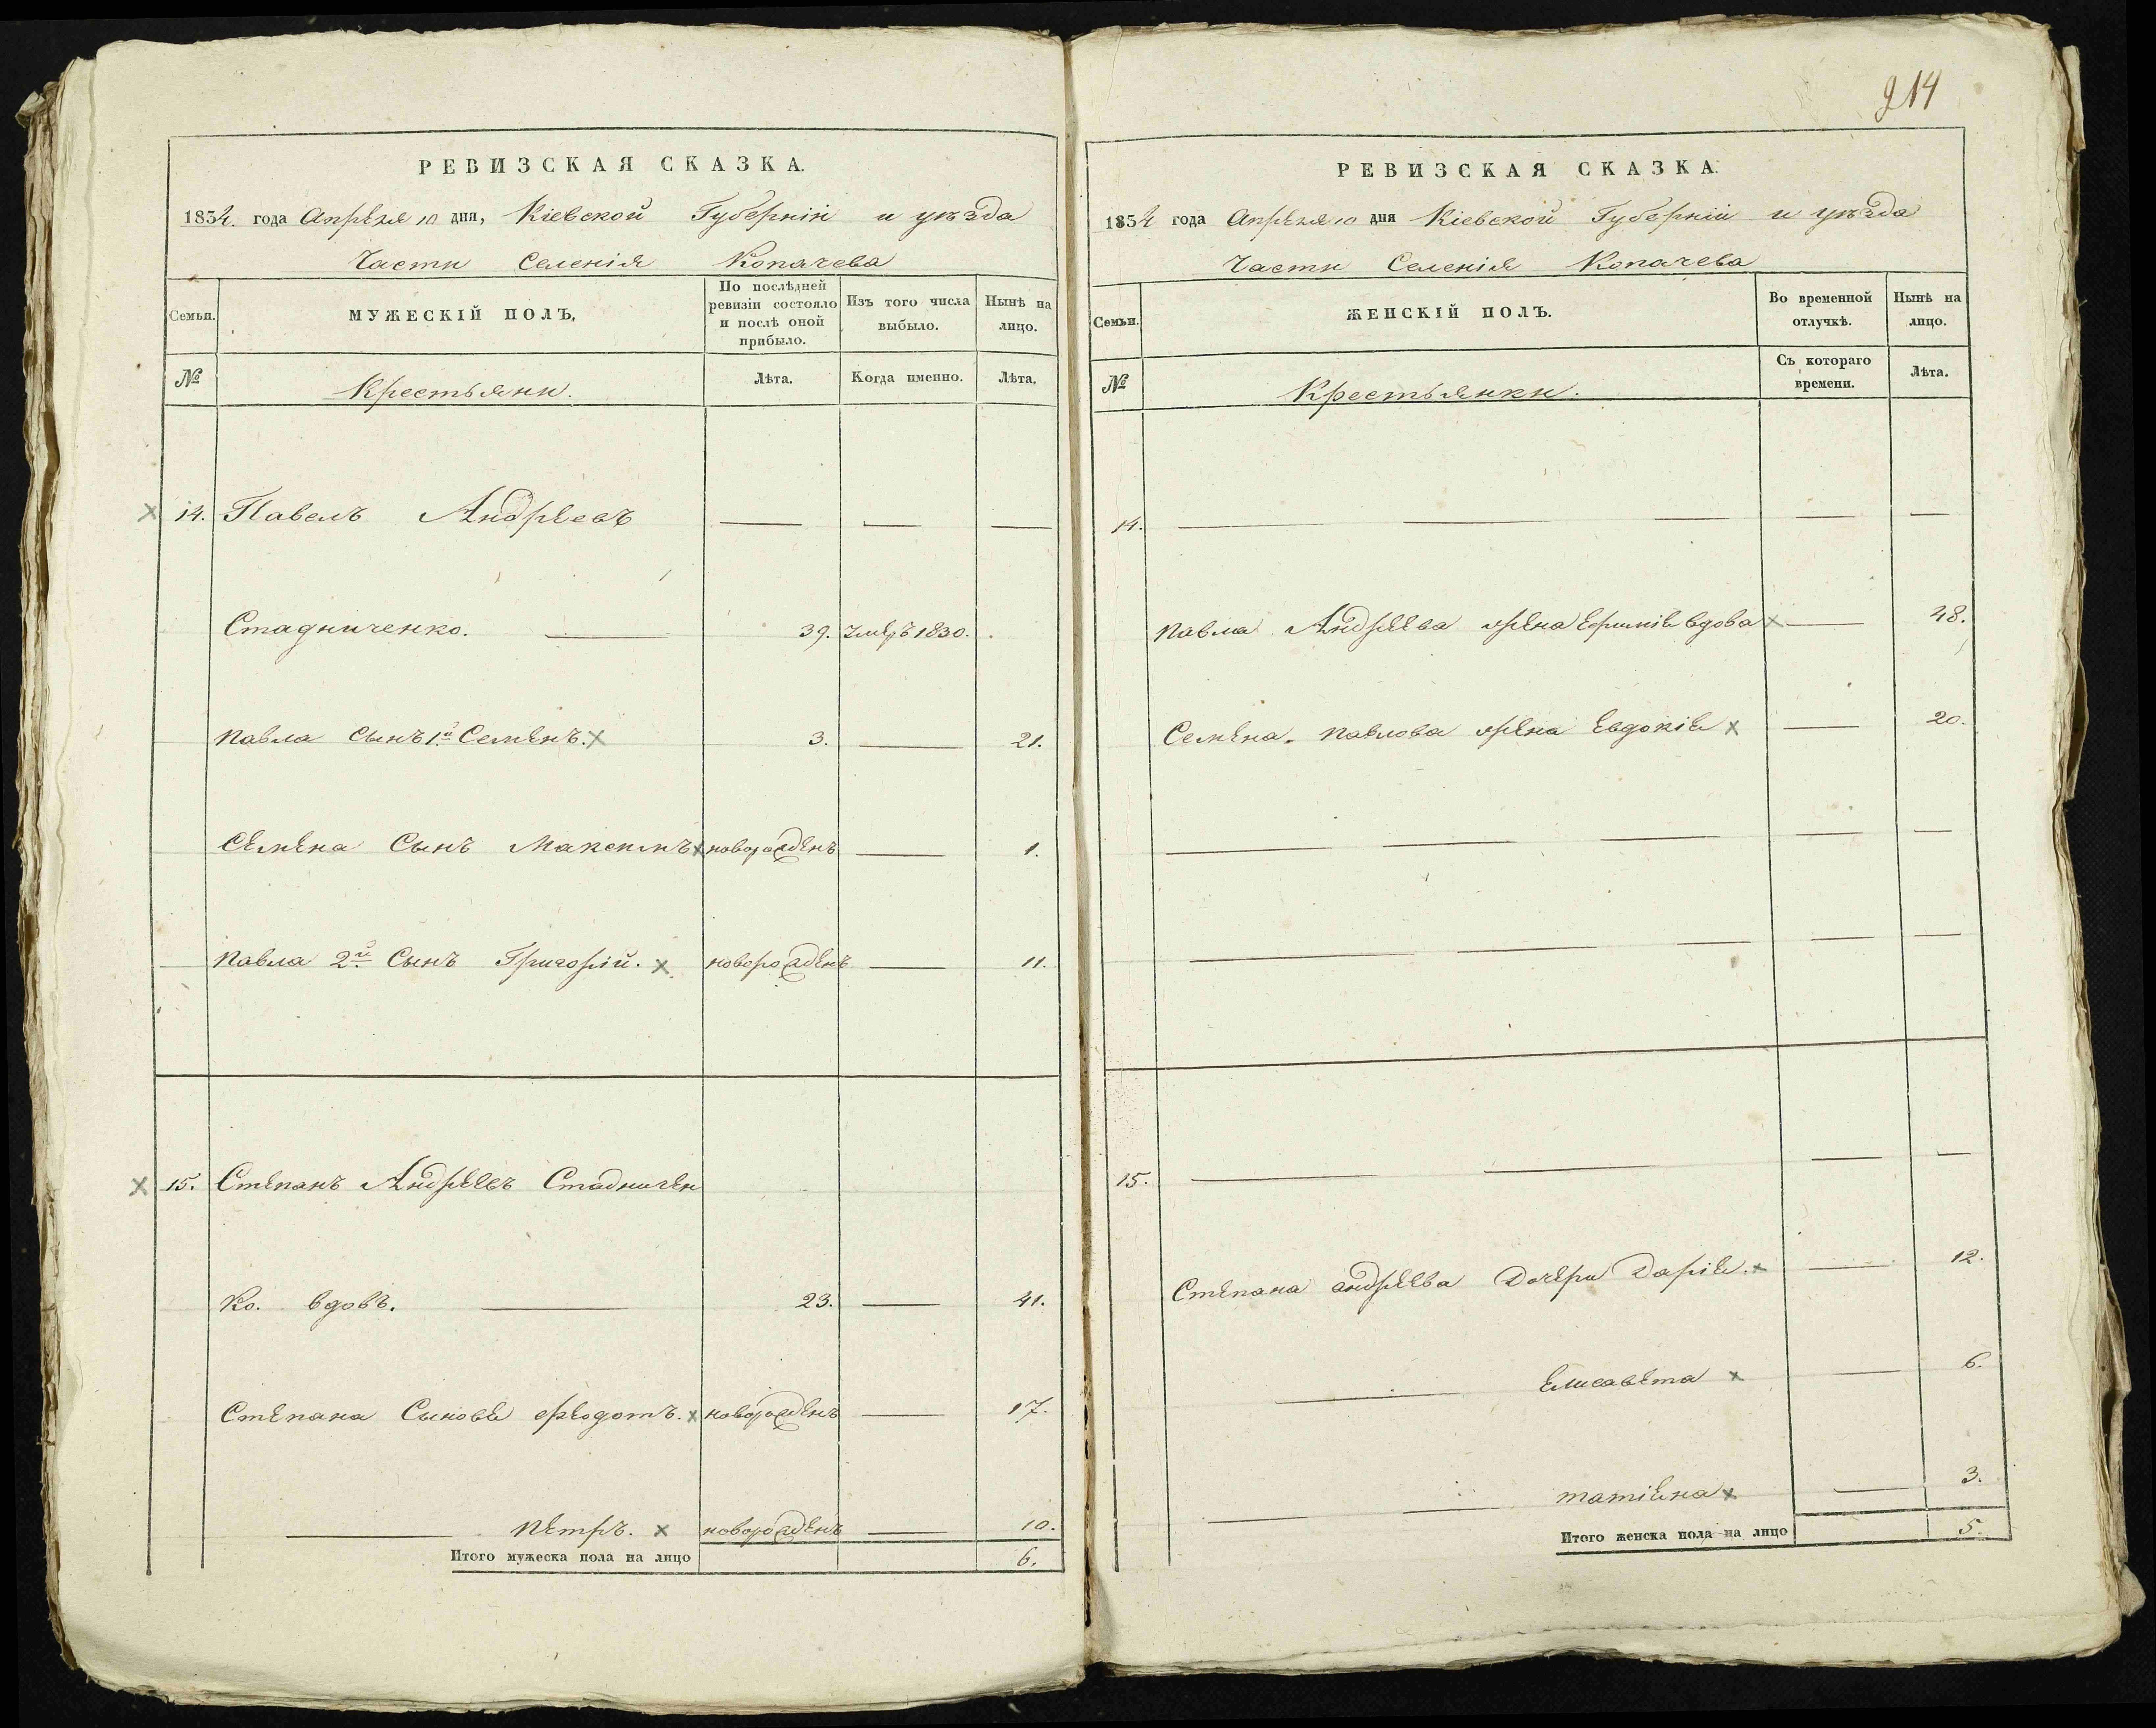 214
РЕВИЗСКАЯ СКАЗКА.
1834. года Апреля 10 дня, Кіевской Губерніи и уѣзда
Части Селенія Копачева
Семьи.
МУЖЕСКІЙ ПОЛЪ.
По послѣдней ревизіи состояло и послѣ оной прибыло.
Изъ того числа выбыло.
Нынѣ на лицо.
№
Крестьяни.
Лѣта.
Когда именно.
Лѣта.
14. Павелъ Андреевъ
Стадниченко. 39. 1830.
Павла сынъ 1й Семенъ. 3. 21.
Семена Сынъ Максимъ новорожденъ 1.
Павла 2й Сынъ Григорій. новорожденъ 11.
15. Степанъ Андреевъ Стадничен
ко. вдовъ. 23. 41.
Степана Сынове Федотъ. новорожденъ 17.
Петръ. новорожденъ 10.
Итого мужеска пола на лицо 6.
РЕВИЗСКАЯ СКАЗКА.
1834 года Апреля 10 дня Кіевской Губерніи и уѣзда
Части Селенія Копачева
Семьи.
ЖЕНСКІЙ ПОЛЪ.
Во временной отлучкѣ.
Нынѣ на лицо.
№
Крестьянки.
Съ котораго времени.
Лѣта.
14.
Павла Андреева жена вдова 48.
Семена Павлова жена Евдокіе 20.
15.
Степана андреева дочери Даріе. 12.
Елисавета 6.
татіена 3.
Итого женска пола на лицо 5.